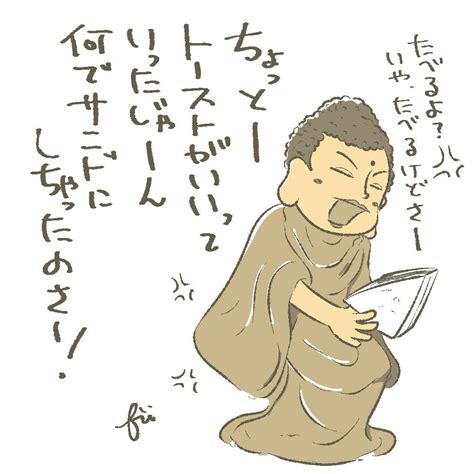 ちょっとー
トーストがいいって
いったじゃーん
何でサンドに
しちゃったのさ!!
たべるよ?
いや、たべるけどさー